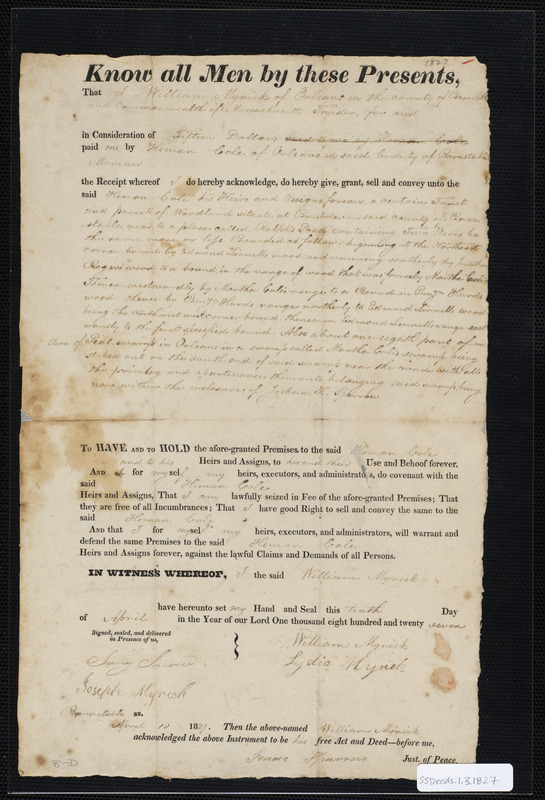 1827
Know all Men by these Presents,
That I William Myrick of Orleans in the County of Barnstable
and Commonwealth of Massachusetts, Trader, for and
in Consideration of Fifteen Dollars
paid me by Heman Cole of Orleans in said County of Barnstable
Mariner
the Receipt whereof I do hereby acknowledge, do hereby give, grant, sell and convey unto the
said Heman Cole his Heirs and Assigns forever, a certain Tract
and parcel of Woodland situate at in said County of Barn
stable near to a place called Ralph's Pond containing Two Acres be
the same more or less Bounded as follows, beginning at the Northeast
corner bound by Edmond Linnells wood and running southerly by
Rogers wood to a bound in the range of wood that was formerly Martha Coles
Thence westwardly by Martha Coles range to a Bound in Benjn Hurds
wood thence by Benjn Hurds range northerly to Edmond Linnells wood
being the Northwest corner bound thence in Edmond Linnells range east
wardly to the first specified bound. Also about one eighth part of an
Acre of Peat swamp in Orleans in a swamp called Martha Cole's swamp being
staked out on the south end of said swamp near the road with all
the privileg and apurtenances thereunto belonging said swamp being
now within the inclosure of Joshua H. Sparrow
To HAVE AND TO HOLD the afore-granted Premises to the said Heman Cole
and to his Heirs and Assigns, to his and their Use and Behoof forever.
AND I for myself my heirs, executors, and administrators, do covenant with the
said Heman Cole
Heirs and Assigns, That I am lawfully seized in Fee of the afore-granted Premises; That
they are free of all Incumbrances; That I have good Right to sell and convey the same to the
said Heman Cole
And that I for myself my heirs, executors, and administrators, will warrant and
defend the same Premises to the said Heman Cole
Heirs and Assigns forever, against the lawful Claims and Demands of all Persons.
IN WITNESS WHEREOF, I the said William Myrick
have hereunto set my Hand and Seal this tenth Day
of April in the Year of our Lord One thousand eight hundred and twenty seven
Signed, sealed, and delivered
in Presence of us,
William Myrick
Lydia Myrick
Joseph Myrick
Barnstable ss.
April 10 1827. Then the above-named William Myrick
acknowledged the above Instrument to be his free Act and Deed—before me,
Sparrow Just. of Peace.
B-D
SSDeeds.1.3.1827